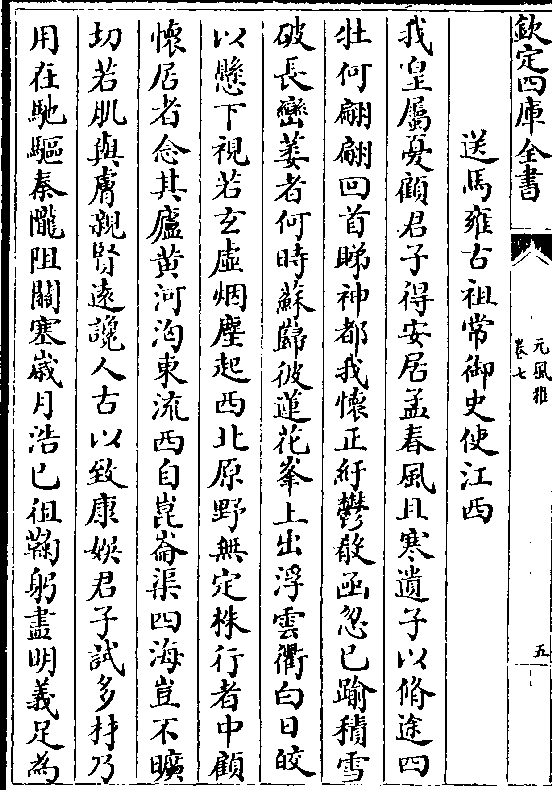 欽定四庫全書
元風雅
卷七
五
送馬雍古祖常御史使江西
我皇屬憂顧君子得安居孟春風且寒遺子以脩途四
牡何翩翩回首睇神都我懷正紆鬱殽函忽已踰積雪
破長巒萎者何時蘇歸彼蓮花峯上出浮雲衢白日皎
以懸下視若玄虛烟塵起西北原野無定株行者中顧
懷居者念其廬黃河洶東流西自崑崙渠四海豈不曠
切若肌與膚親賢遠讒人古以致康娛君子試多材乃
用在馳驅秦隴阻關塞歲月浩已徂鞠躬盡明義足為